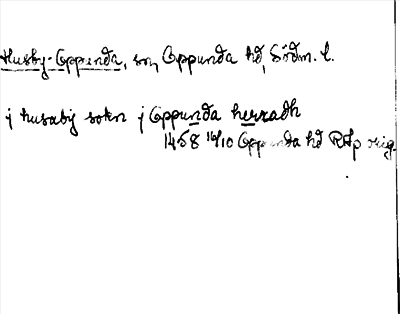 Husby-Oppunda, sn, Oppunda hd, Södm. l.
j husabij sokn j Oppunda herradh
1458 16/10 Oppunda hd RAp orig.